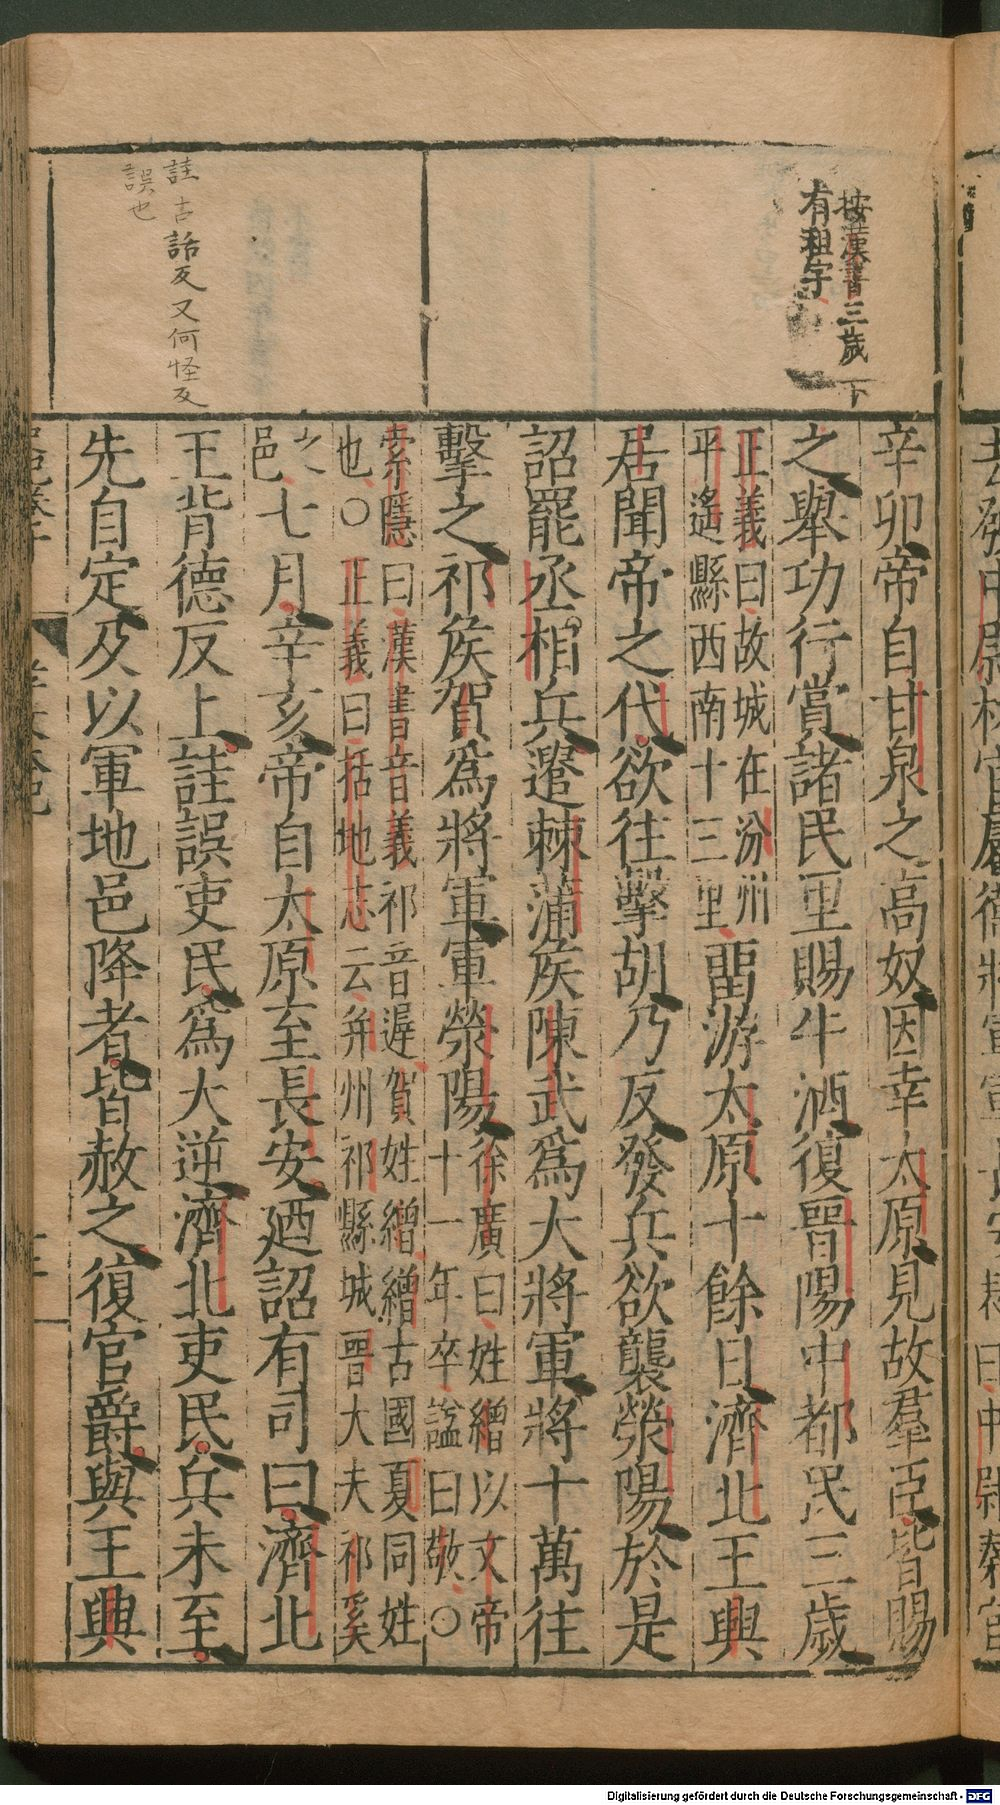 按漢書三歲下
有租字
詿古話反又何怪反
誤也
辛卯帝自甘泉之高奴因幸太原見故羣臣皆賜
之舉功行賞諸民里賜牛酒復晉陽中都民三歲
正義曰故城在汾州
平遙縣西南十三里
畱游太原十餘日濟北王興
居聞帝之代欲往擊胡乃反發兵欲襲滎陽於是
詔罷丞相兵遣棘蒲侯陳武爲大將軍將十萬往
擊之祁侯賀爲將軍軍滎陽
徐廣曰姓繒以文帝
十一年卒謚曰敬○
索隱曰漢書音義祁音遲賀姓繒繒古國夏同姓
也○正義曰括地志云并州祁縣城晉大夫祁奚
之
邑
七月辛亥帝自太原至長安廼詔有司曰濟北
王背德反上詿誤吏民爲大逆濟北吏民兵未至
先自定及以軍地邑降者皆赦之復官爵與王興
Digitalisierung gefördert durch die Deutsche Forschungsgemeinschaft - DFG